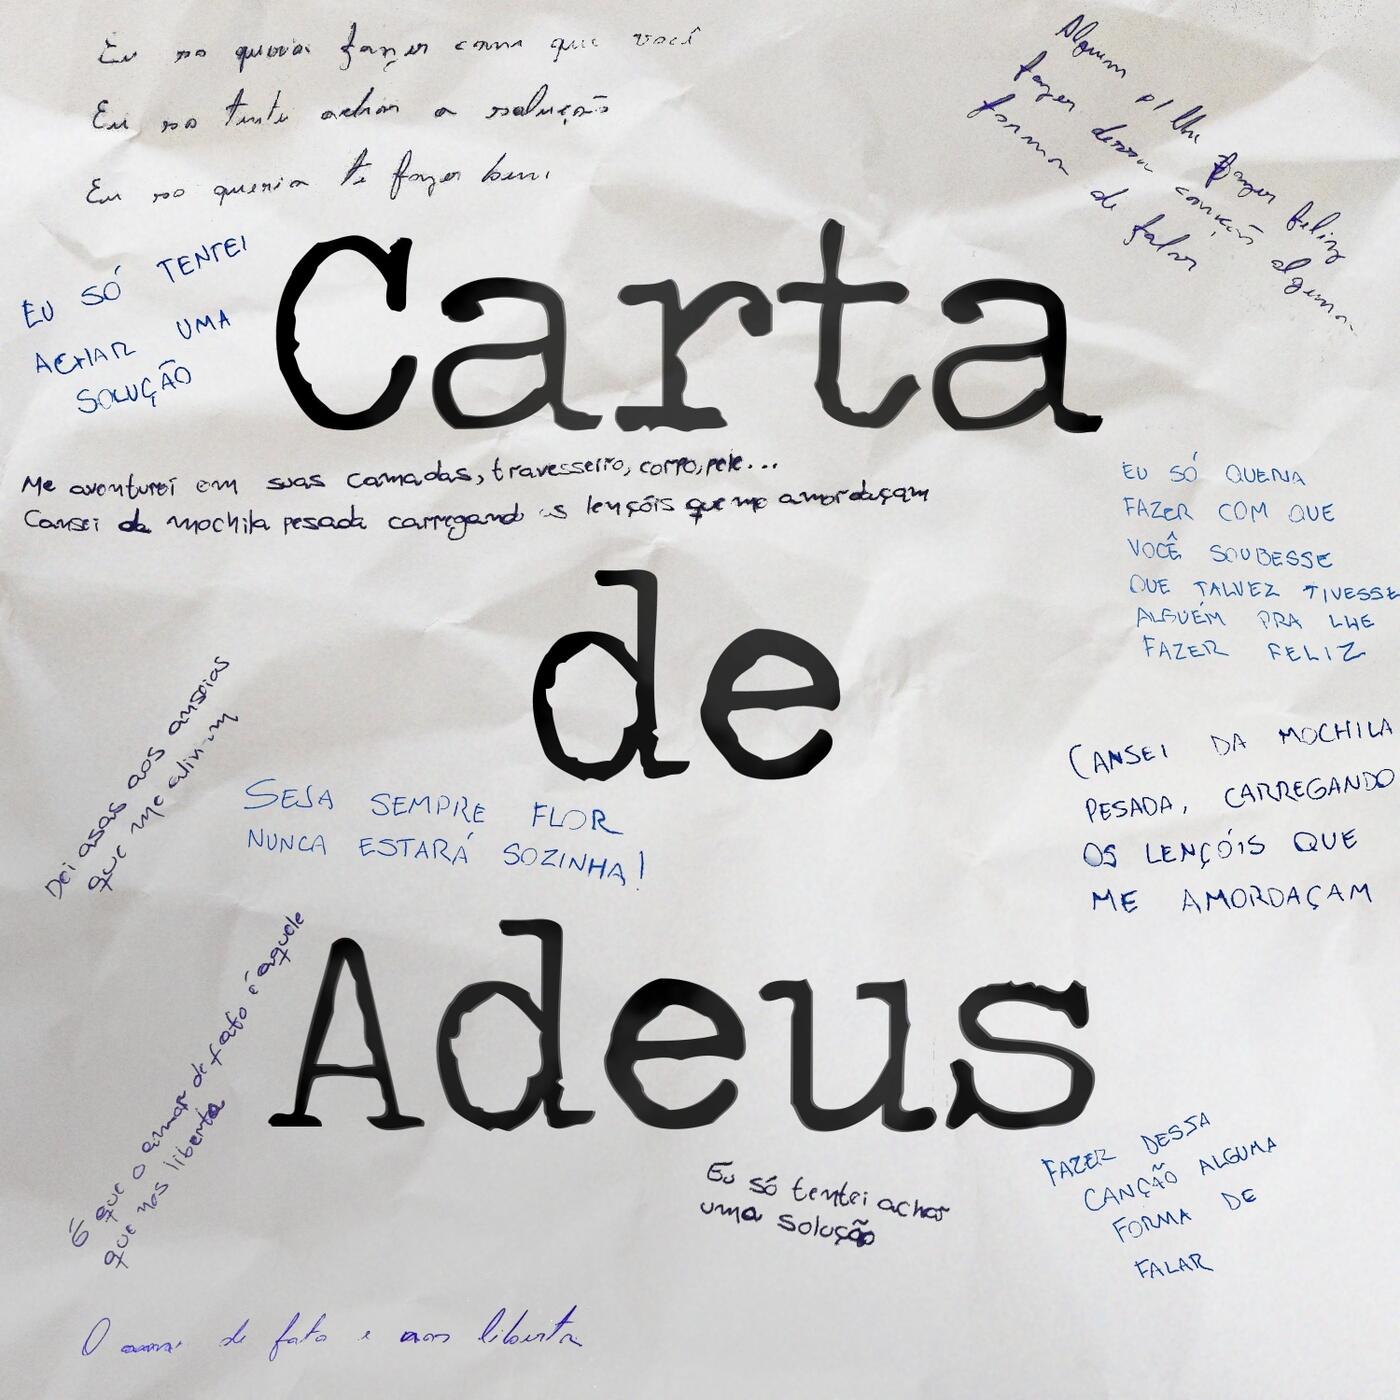 Eu so queria fazer com que você
Eu so tente achar a solução
Eu so queria te fazer bem
Alguem p/ lhe fazer feliz
fazer dessa canção alguma
forma de falar
EU SÓ TENTEI
ACHAR UMA
SOLUÇÃO
Carta
Me aventurei em suas camadas, travesseiro, corpo, pele...
Cansei da mochila pesada carregando os lençóis que me amordaçam
EU SÓ QUERIA
FAZER COM QUE
VOCÊ SOUBESSE
QUE TALVEZ TIVESSE
ALGUÉM PRA LHE
FAZER FELIZ
de
Dei asas aos anseios
que me
CANSEI DA MOCHILA
PESADA, CARREGANDO
OS LENÇÓIS QUE
ME AMORDAÇAM
SEJA SEMPRE FLOR
NUNCA ESTARÁ SOZINHA!
Adeus
É que o amar de fato é aquele
que nos liberta
Eu só tentei achar
uma solução
FAZER DESSA
CANÇÃO ALGUMA
FORMA DE
FALAR
O de fato e nos liberta